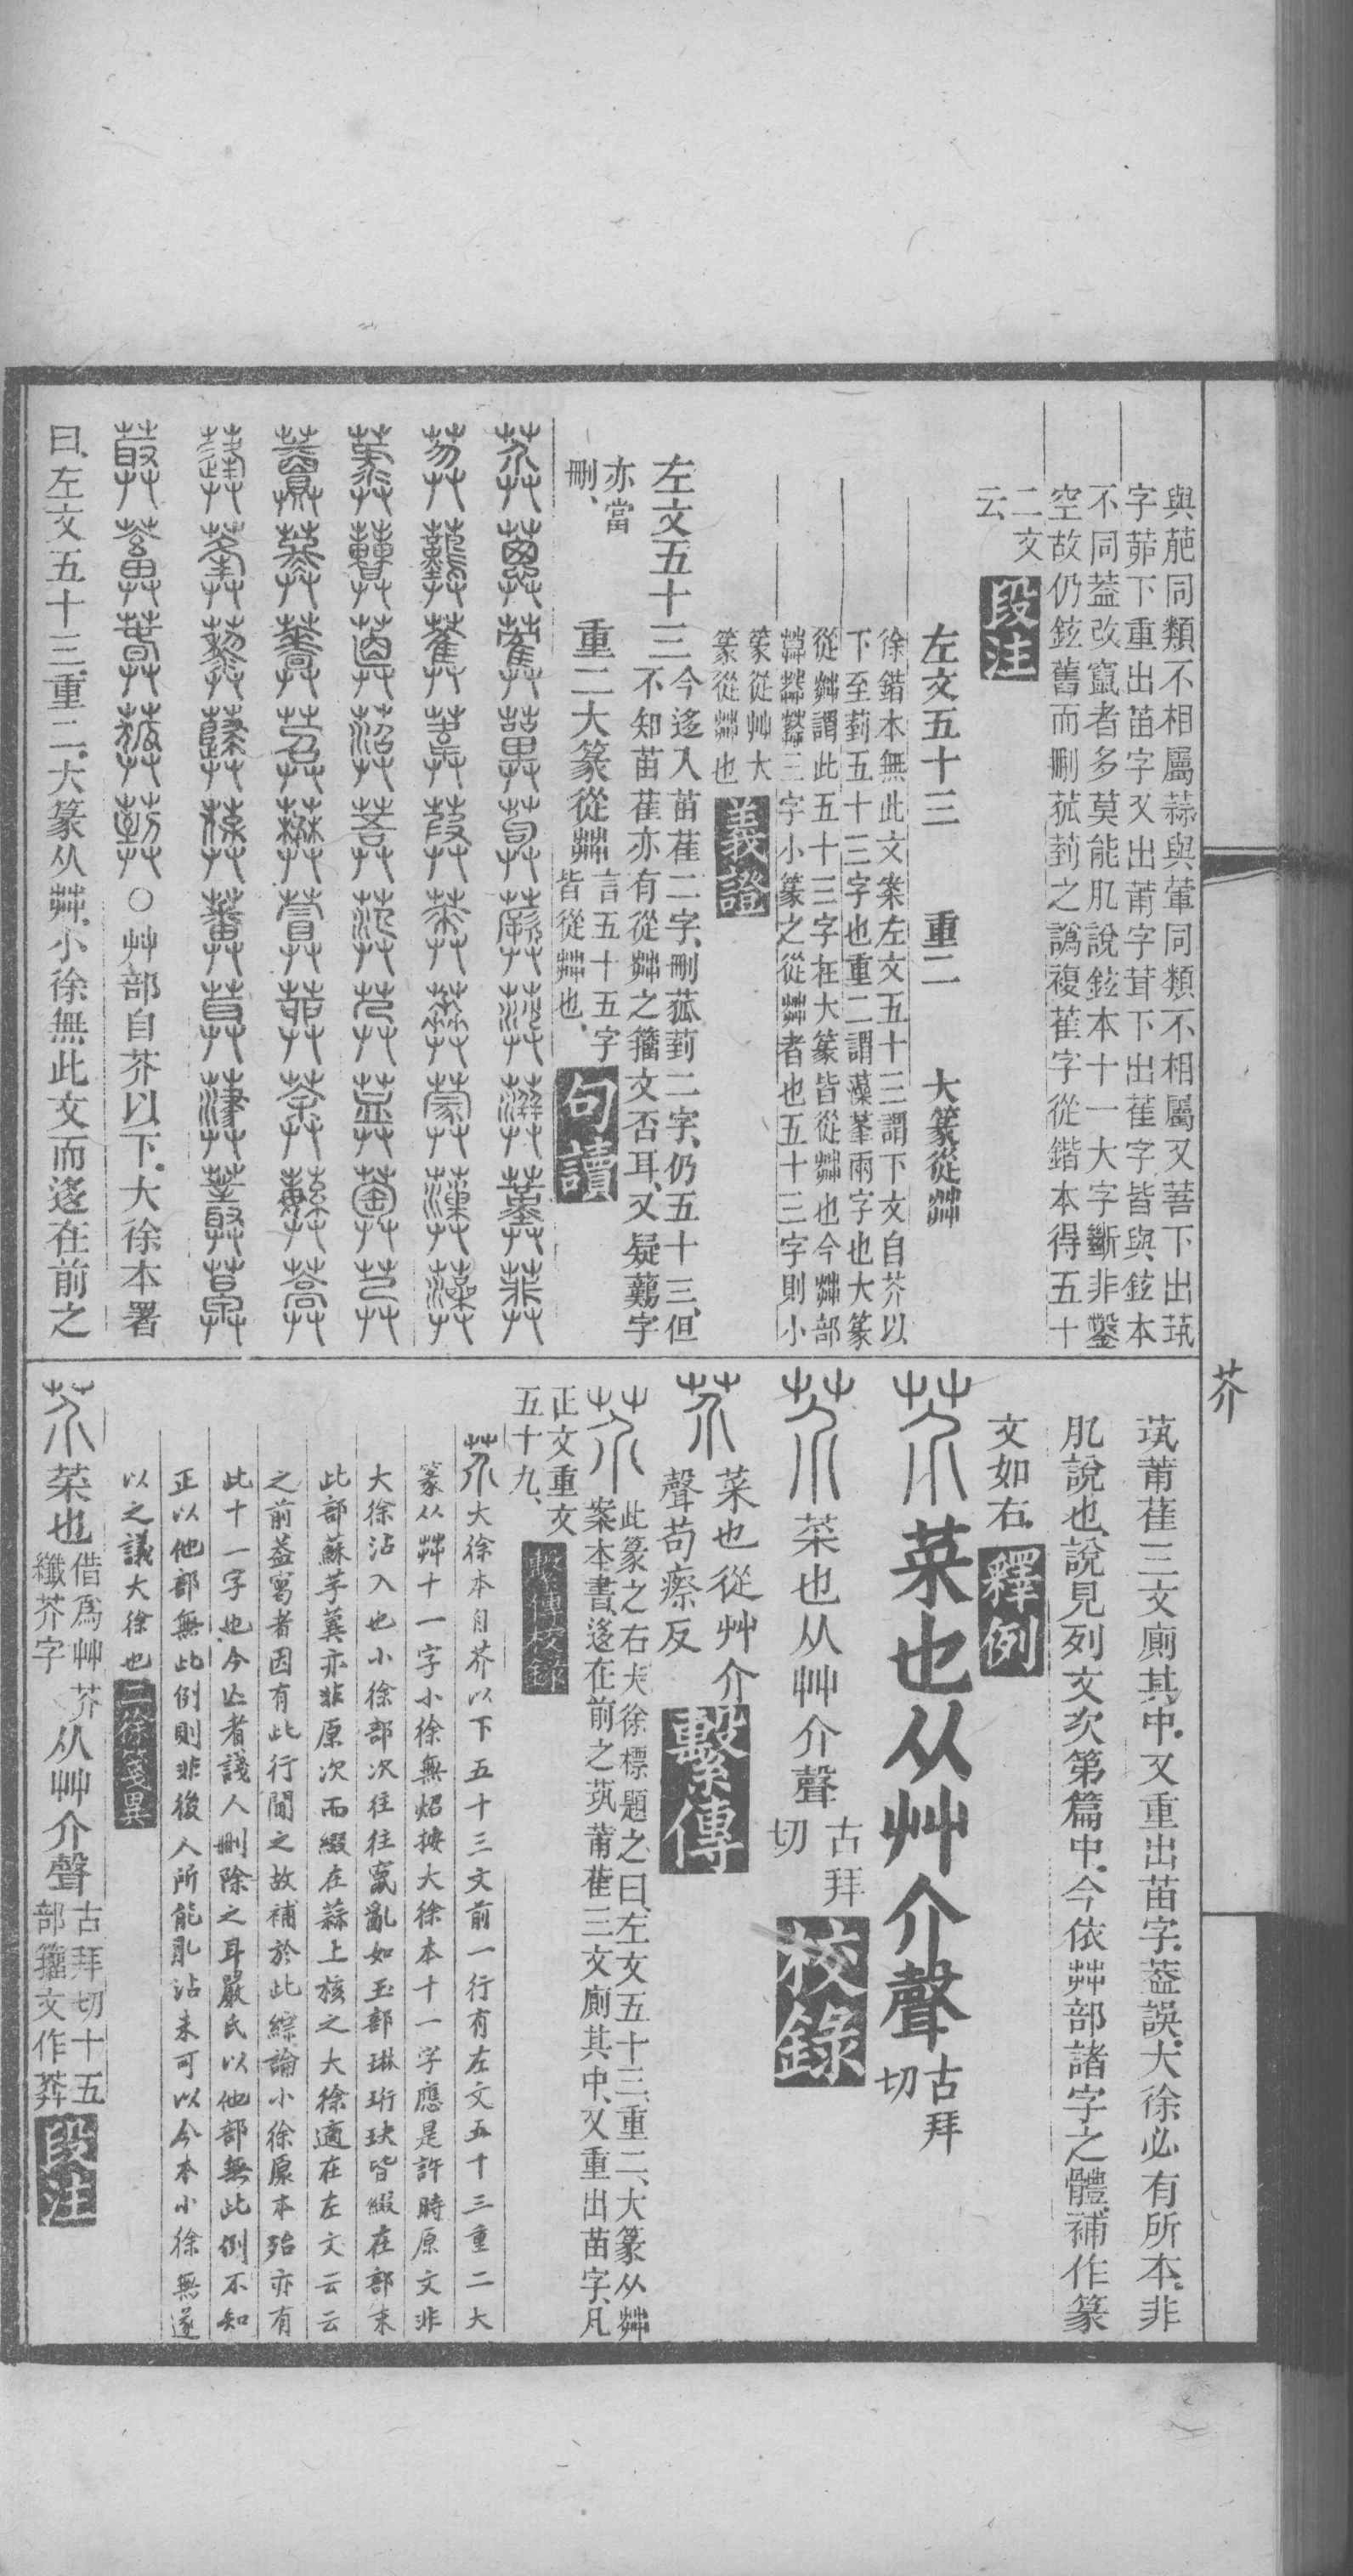 與葩同類不相屬蒜與葷同類不相屬又菩下出茿
字茆下重出苗字又出莆字茸下出萑字皆與鉉本
不同蓋改竄者多莫能肊說鉉本十一大字斷非鑿
空故仍鉉舊而刪菰菿之譌複萑字從鍇本得五十
二文
云
段注
左文五十三　重二　大篆從茻
徐鍇本無此文案左文五十三謂下文自芥以
下至菿五十三字也重二謂薻荜兩字也大篆
從茻謂此五十三字在大篆皆從茻也今茻部
三字小篆之從茻者也五十三字則小
篆從艸大
篆從茻也
義證
左文五十三
今迻入苗萑二字、刪菰菿二字、仍五十三、但
不知苗萑亦有從茻之籀文否耳、又疑蘜字
亦當
刪、
重二大篆從茻
言五十五字
皆從茻也、
句讀
○艸部自芥以下、大徐本署
曰、左文五十三、重二、大篆从茻、小徐無此文而迻在前之
芥
茿莆萑三文廁其中、又重出苗字、蓋誤、大徐必有所本、非
肊說也、說見列文次第篇中、今依茻部諸字之體、補作篆
文如右、
釋例
菜也从艸介聲
古拜
切
菜也从艸介聲
古拜
切
校錄
菜也從艸介
聲苟瘵反
繫傳
此篆之右大徐標題之曰、左文五十三、重二、大篆从茻
案本書、迻在前之茿莆萑三文廁其中、又重出苗字、凡
正文重文
五十九、
繫傳校錄
大徐本自芥以下五十三文前一行有左文五十三重二大
篆从茻十一字小徐無炤按大徐本十一字應是許時原文非
大徐沾入也小徐部次往往竄亂如玉部琳珩玦皆綴在部末
此部蘇芋萁亦非原次而綴在蒜上核之大徐適在左文云云
之前蓋寫者因有此行閒之故補於此綜論小徐原本殆亦有
此十一字也今𣥂者淺人刪除之耳嚴氏以他部無此例不知
正以他部無此例則非後人所能肊沾未可以今本小徐無遂
以之議大徐也
二徐箋異
菜也
借爲艸芥
纖芥字
从艸介聲
古拜切十五
部籀文作
段注